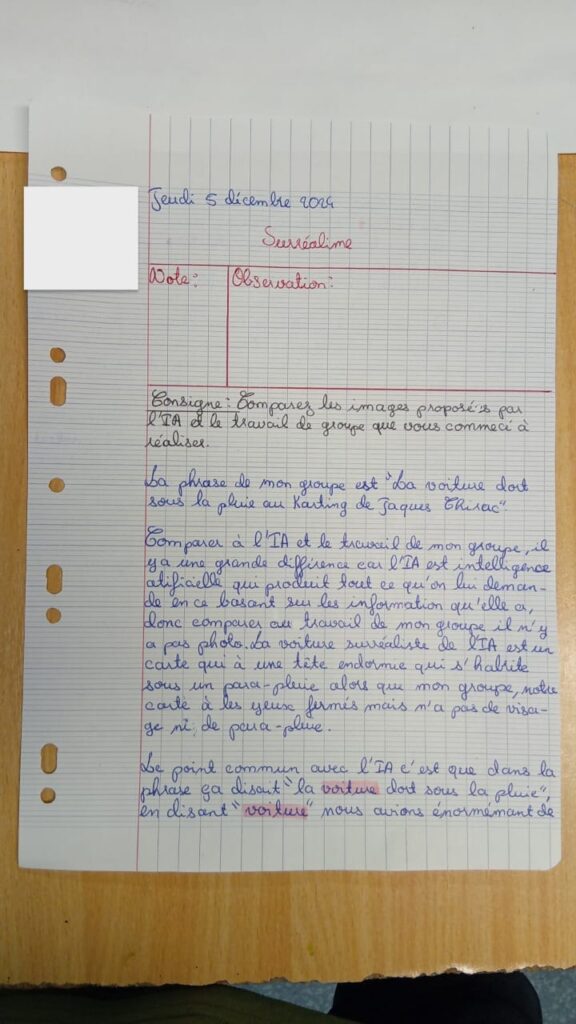 Jeudi 5 décembre 2024
Surréalime
Note:
Observation:
Consigne: Comparez les images proposé·s par
l'IA et le travail de groupe que vous commecé à
réaliser.
La phrase de mon groupe est "La voiture dort
sous la pluie au Karting de Jaques Chirac".
Comparer à l'IA et le travail de mon groupe, il
y a une grande différence car l'IA est intelligence
atificielle qui produit tout ce qu'on lui deman-
de en ce basant sur les information qu'elle a,
donc comparer au travail de mon groupe il n'y
a pas photo. La voiture surréaliste de l'IA est un
carte qui à une tête endormie qui s'habrite
sous un para-pluie alors que mon groupe, notre
carte à les yeux fermés mais n'a pas de visa-
ge ni de para-pluie.
Le point commun avec l'IA c'est que dans la
phrase ça disait "la voiture dort sous la pluie",
en disant "voiture" nous avions énormémant de